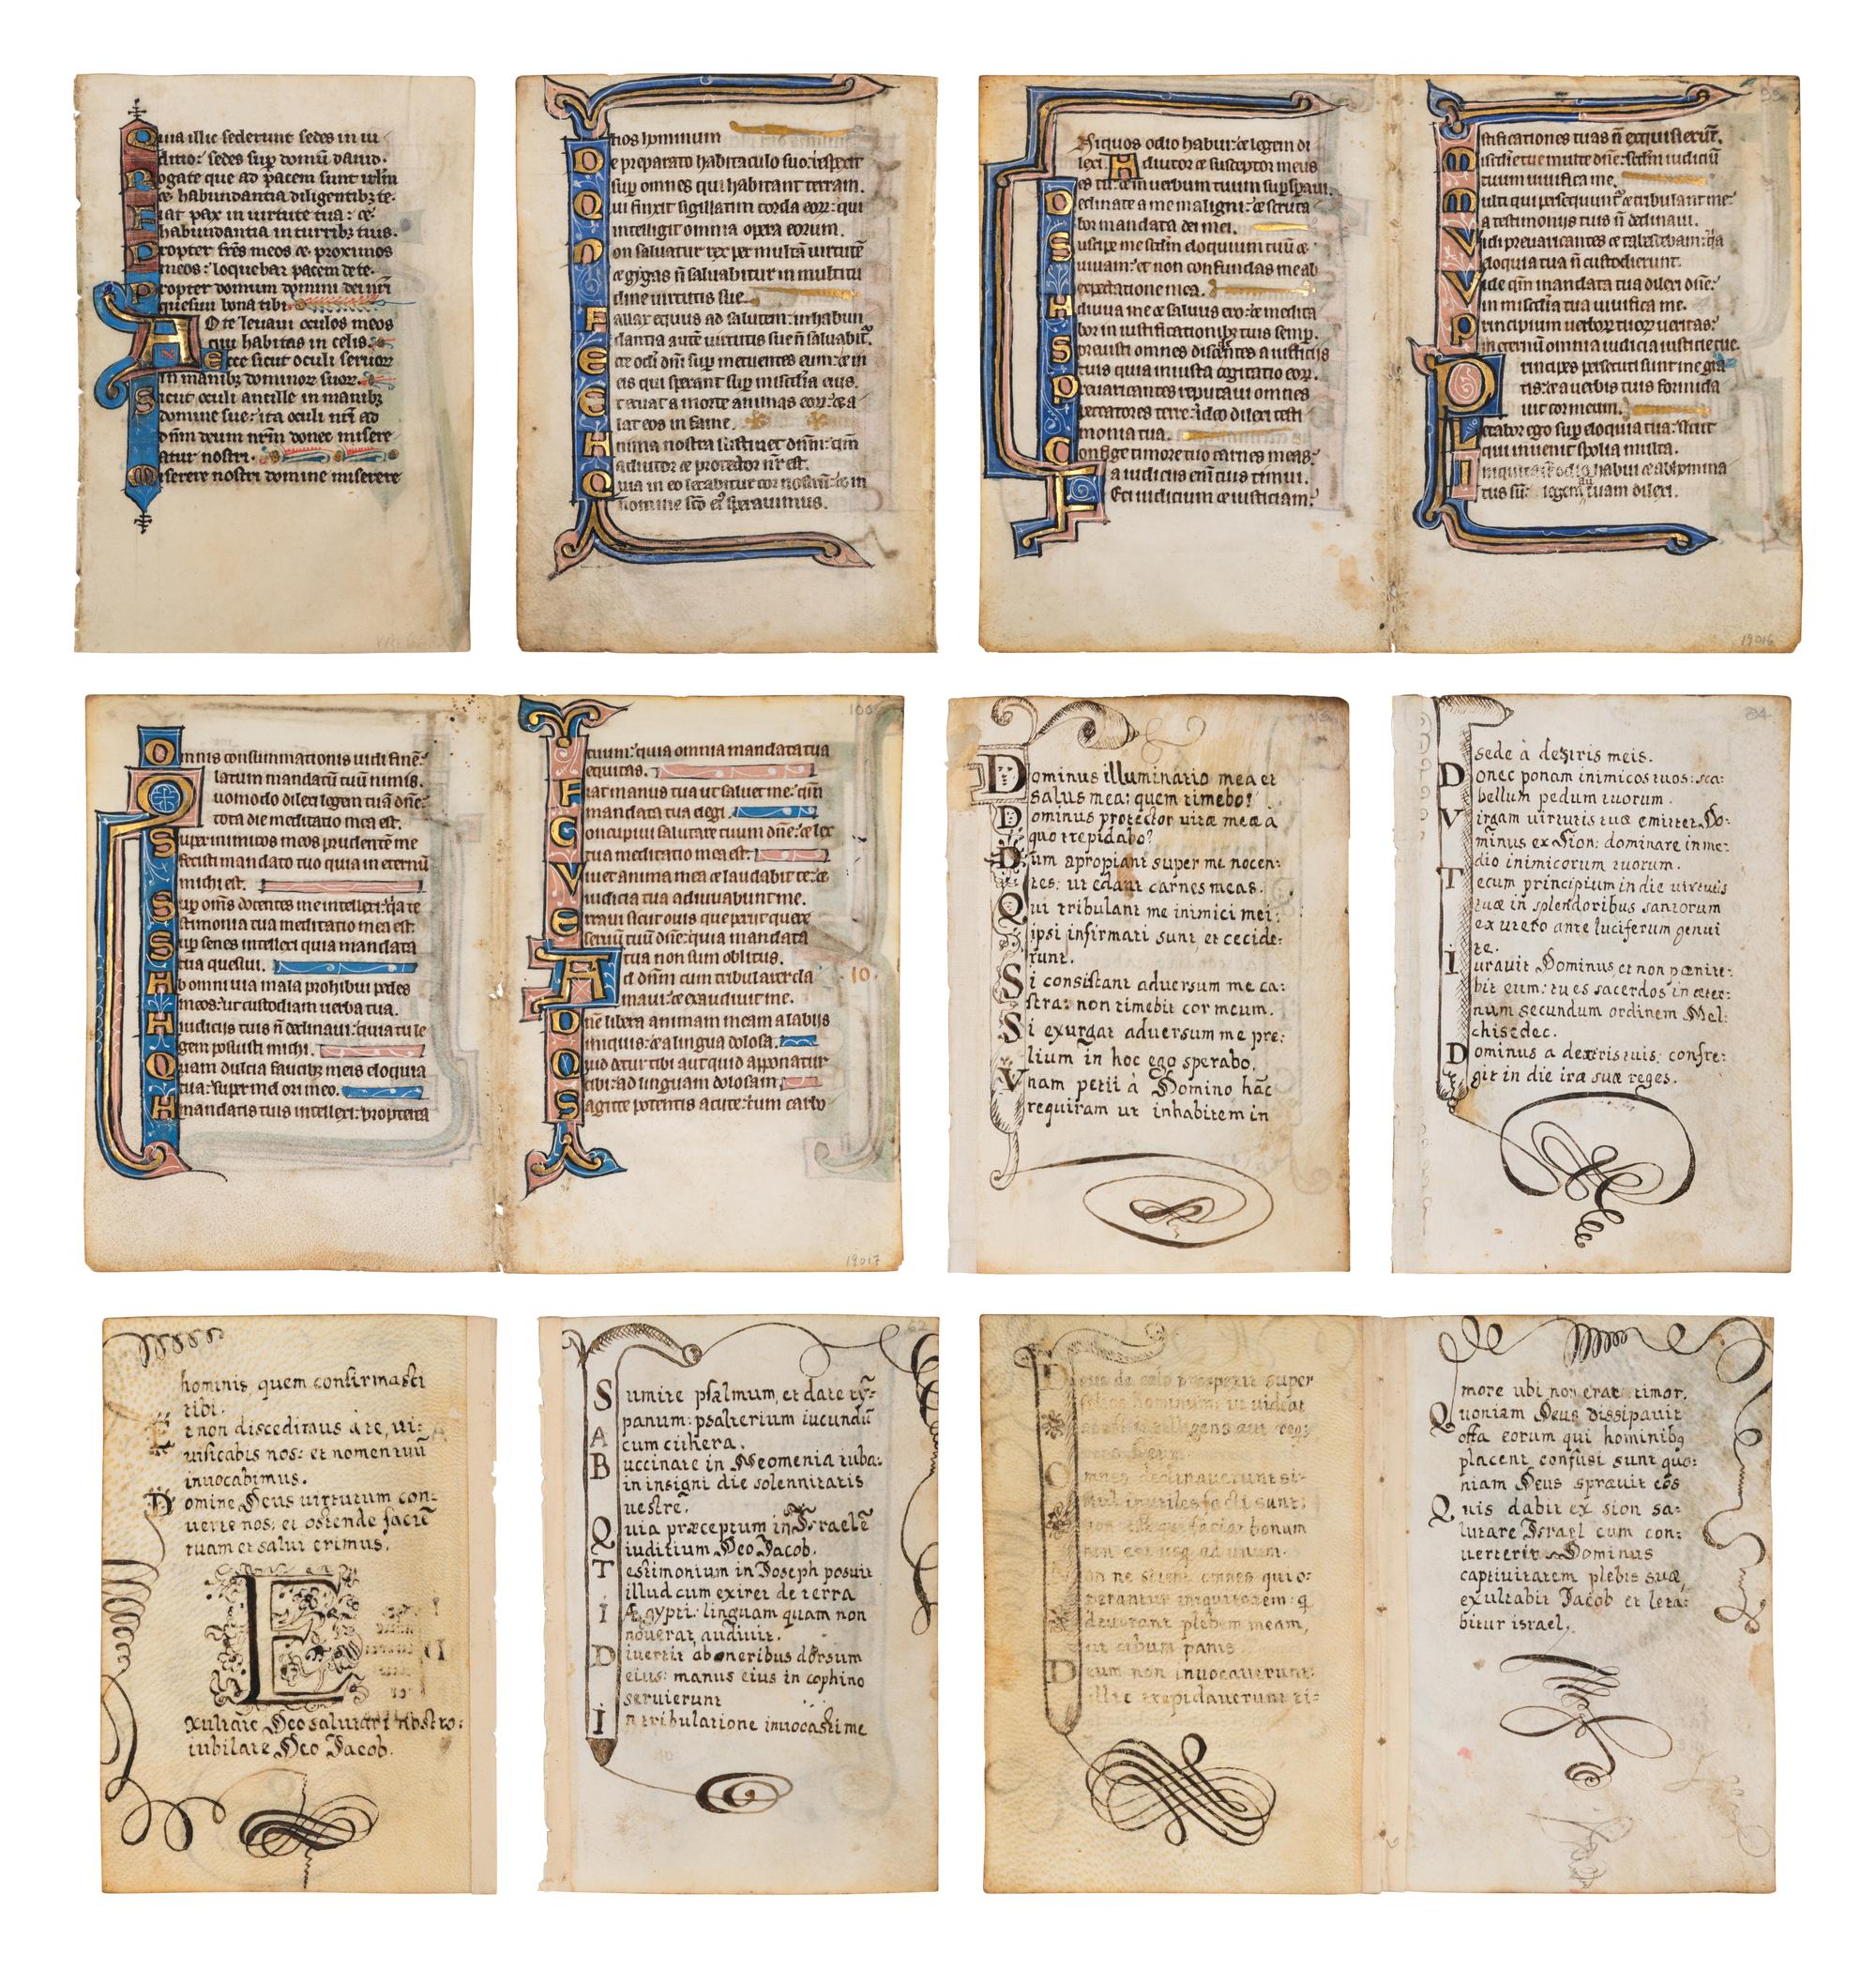 Quia illic sederunt sedes in iu
ditio: sedes sup domū dauid.
Rogate que ad pacem sunt irlm̄
et habundantia diligentibꝫ te.
Fiat pax in uirtute tua: et
habundantia in turribꝫ tuis.
Propter fr̄es meos et proximos
meos: loquebar pacem de te.
Propter domum domini dei nr̄i
quesiui bona tibi.
Ad te leuaui oculos meos
qui habitas in celis.
Ecce sicut oculi seruoꝝ
in manibꝫ dominoꝝ suoꝝ.
Sicut oculi ancille in manibꝫ
domine sue: ita oculi nr̄i ad
dn̄m deum nr̄m donec misere
atur nostri.
Miserere nostri domine miserere
lios hominum
De preparato habitaculo suo: respexit
sup omnes qui habitant terram.
Qui finxit sigillatim corda eoꝝ: qui
intelligit omnia opera eorum.
Non saluatur rex per multā uirtutē
et gygas n̄ saluabitur in multitu
dine uirtutis sue.
Fallax equus ad salutem: in habun
dantia autē uirtutis sue n̄ saluabit.
Ecce oc̄li dn̄i sup metuentes eum: et in
eis qui sperant sup misc̄dia eius.
Et eruat a morte animas eoꝝ: et a
lat eos in fame.
Anima nostra sustinet dn̄m: qm̄
adiutor et protector nr̄ est.
Quia in eo letabitur cor nostrū: et in
nomine sc̄o eiꝰ sperauimus.
Iniquos odio habui: et legem di
lexi. Adiutor et susceptor meus
es tu: et in uerbum tuum sup sp̄aui.
Declinate a me maligni: et scruta
bor mandata dei mei.
Suscipe me scd̄m eloquium tuū et
uiuam: et non confundas me ab
expectatione mea.
Adiuua me et saluus ero: et medita
bor in iustificationibꝫ tuis semp.
Spreuisti omnes discedētes a iudiciis
tuis quia iniusta cogitatio eoꝝ.
Preuaricantes reputaui omnes
peccatores terre: ideo dilexi testi
monia tua.
Confige timore tuo carnes meas:
a iudiciis enī tuis timui.
Feci iudicium et iusticiam:
99
iustificationes tuas n̄ exquisierūt.
Misc̄die tue multe dn̄e: scd̄m iudiciū
tuum uiuifica me.
Multi qui persequunt᷑ et tribulant me:
a testimoniis tuis n̄ declinaui.
Vidi preuaricantes et tabescebam: q̄a
eloquia tua n̄ custodierunt.
Vide qm̄ mandata tua dilexi dn̄e:
in misc̄dia tua uiuifica me.
Principium uerboꝝ tuoꝝ ueritas:
in eternū omnia iudicia iusticie tue.
Principes persecuti sunt me gra
tis: et a uerbis tuis formida
uit cor meum.
Letabor ego sup eloquia tua: sicut
qui inuenit spolia multa.
Iniquitatē odio habui et abhomina
tus sū: legem autē tuam dilexi.
19016
Omnis consummationis uidi finē:
latum mandatū tuū nimis.
Quomodo dilexi legem tuā dn̄e:
tota die meditatio mea est.
Super inimicos meos prudentē me
fecisti mandato tuo quia in eternū
michi est.
Sup om̄s docentes me intellexi: q̄a te
stimonia tua meditatio mea est.
Sup senes intellexi quia mandata
tua quesiui.
Ab omni uia mala prohibui pedes
meos: ut custodiam uerba tua.
A iudiciis tuis n̄ declinaui: quia tu le
gem posuisti michi.
Quam dulcia faucibꝫ meis eloquia
tua: super mel ori meo.
A mandatis tuis intellexi: propterea
100
tuum: quia omnia mandata tua
equitas.
Fiat manus tua ut saluet me: qm̄
mandata tua elegi.
Concupiui salutare tuum dn̄e: et lex
tua meditatio mea est.
Viuet anima mea et laudabit te: et
iudicia tua adiuuabunt me.
Erraui sicut ouis que periit quere
seruū tuū dn̄e: quia mandata
tua non sum oblitus.
Ad dn̄m cum tribularer cla
maui: et exaudiuit me.
Dn̄e libera animam meam a labiis
iniquis: et a lingua dolosa.
Quid detur tibi aut quid apponatur
tibi: ad linguam dolosam.
Sagitte potentis acute: cum carbo
10.
19017
Dominus illuminatio mea et
salus mea: quem timebo?
Dominus protector uitæ meæ à
quo trepidabo?
Dum apropiant super me nocen:
tes: ut edant carnes meas.
Qui tribulant me inimici mei:
ipsi infirmati sunt, et cecide:
runt.
Si consistant aduersum me ca:
stra: non timebit cor meum.
Si exurgat aduersum me pre:
lium in hoc ego sperabo.
Vnam petii à Domino hāc
requiram ut inhabitem in
84
sede à dextris meis.
Donec ponam inimicos tuos: sca:
bellum pedum tuorum.
Virgam uirtutis tuæ emittet Do:
minus ex Sion: dominare in me:
dio inimicorum tuorum.
Tecum principium in die uirtutis
tuæ in splendoribus santorum
ex utero ante luciferum genui
te.
Iurauit Dominus, et non pœnite:
bit eum: tu es sacerdos in æter:
num secundum ordinem Mel:
chisedec.
Dominus a dextris tuis: confre:
git in die iræ suæ reges.
hominis quem confirmasti
tibi.
Et non discedimus à te, ui:
uificabis nos: et nomen tuū
inuocabimus.
Domine Deus uirtutum con:
uerte nos: et ostende faciē
tuam et salui erimus.
Exultate Deo salutari nostro:
iubilate Deo Jacob.
62
Sumite psalmum, et date tÿ:
panum: psalterium iucundū
cum cithera.
Buccinate in Neomenia tuba:
in insigni die solennitatis
uestre.
Quia præceptum in Israelē
iuditium Deo Jacob.
Testimonium in Joseph posuit
illud cum exiret de terra
Ægypti: linguam quam non
nouerat, audiuit.
Diuertit ab oneribus dorsum
eius: manus eius in cophino
seruierunt
In tribulatione inuocasti me
Deus de celo prospexit super
filios hominum: ut uideat
si est intelligens aut req:
rens Deum.
Omnes declinauerunt si:
mul inutiles facti sunt:
non est qui faciat bonum
non est usq ad unum.
Non ne scient omnes qui o:
perantur iniquitatem: q
deuorant plebem meam,
ut cibum panis
Deum non inuocauerunt:
illic trepidauerunt ti:
more ubi non erat timor.
Quoniam Deus dissipauit
ossa eorum qui hominibꝫ
placent confusi sunt quo:
niam Deus spreuit eos
Quis dabit ex sion sa:
lutare Israel cum con:
uerterit Dominus
captiuitatem plebis suæ,
exultabit Jacob et leta:
bitur israel.